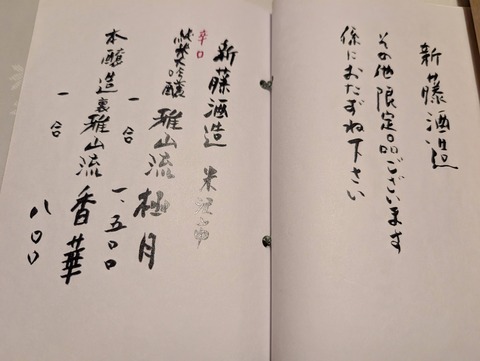 新藤酒造
その他限定品ございます
係におたずね下さい
新藤酒造
辛口
純米大吟醸 雅山流 極月
一合 一、五〇〇
本醸造 裏雅山流 香華
一合 八〇〇